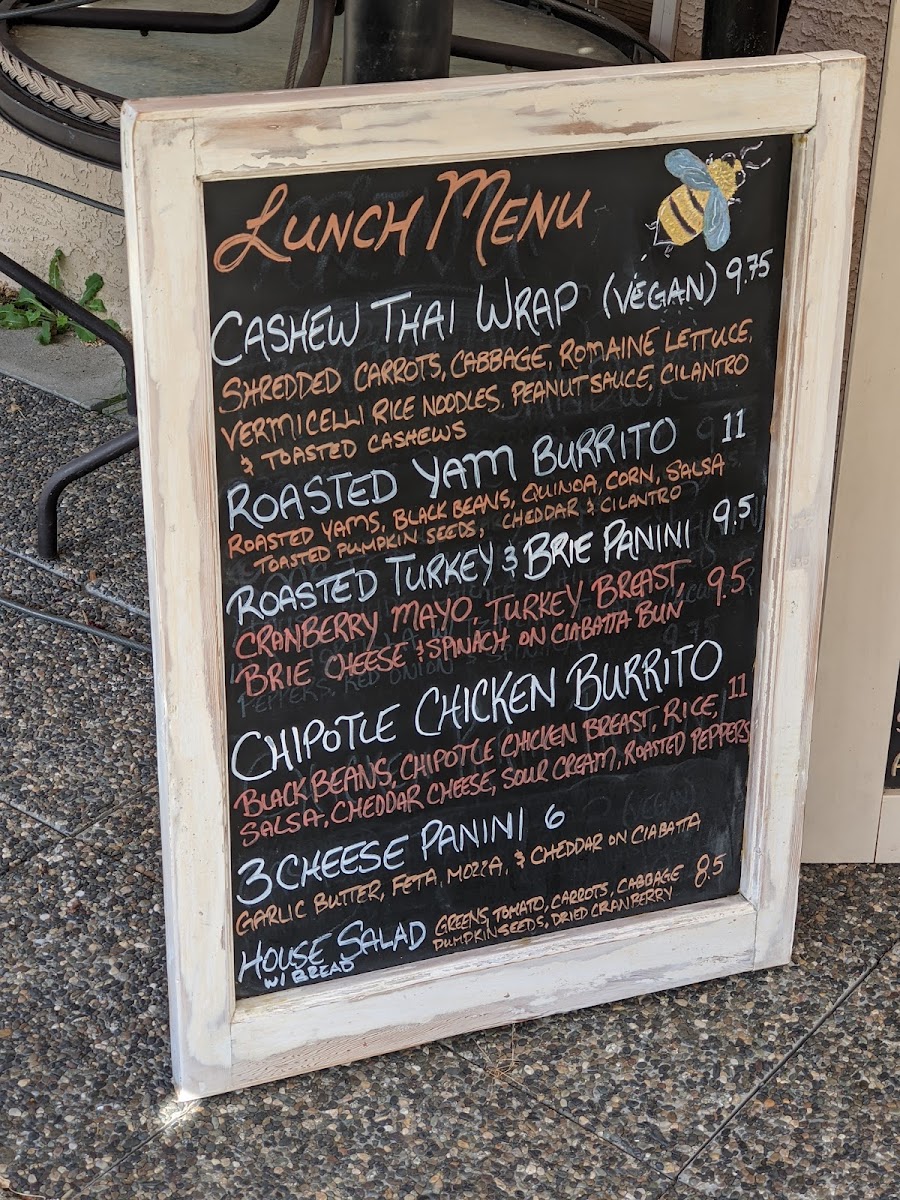 Lunch Menu
Cashew Thai Wrap (vegan) 9.75
Shredded carrots, cabbage, romaine lettuce,
vermicelli rice noodles, peanut sauce, cilantro
& toasted cashews
Roasted Yam Burrito 11
Roasted yams, black beans, quinoa, corn, salsa
toasted pumpkin seeds, cheddar & cilantro
Roasted Turkey & Brie Panini 9.5
Cranberry mayo, turkey breast, 9.5
Brie cheese & spinach on ciabatta bun
Chipotle Chicken Burrito
Black beans, chipotle chicken breast, rice, 11
salsa, cheddar cheese, sour cream, roasted peppers
3 Cheese Panini 6
Garlic butter, feta, mozza, & cheddar on ciabatta
House Salad
w/ bread
Greens, tomato, carrots, cabbage 8.5
pumpkin seeds, dried cranberry